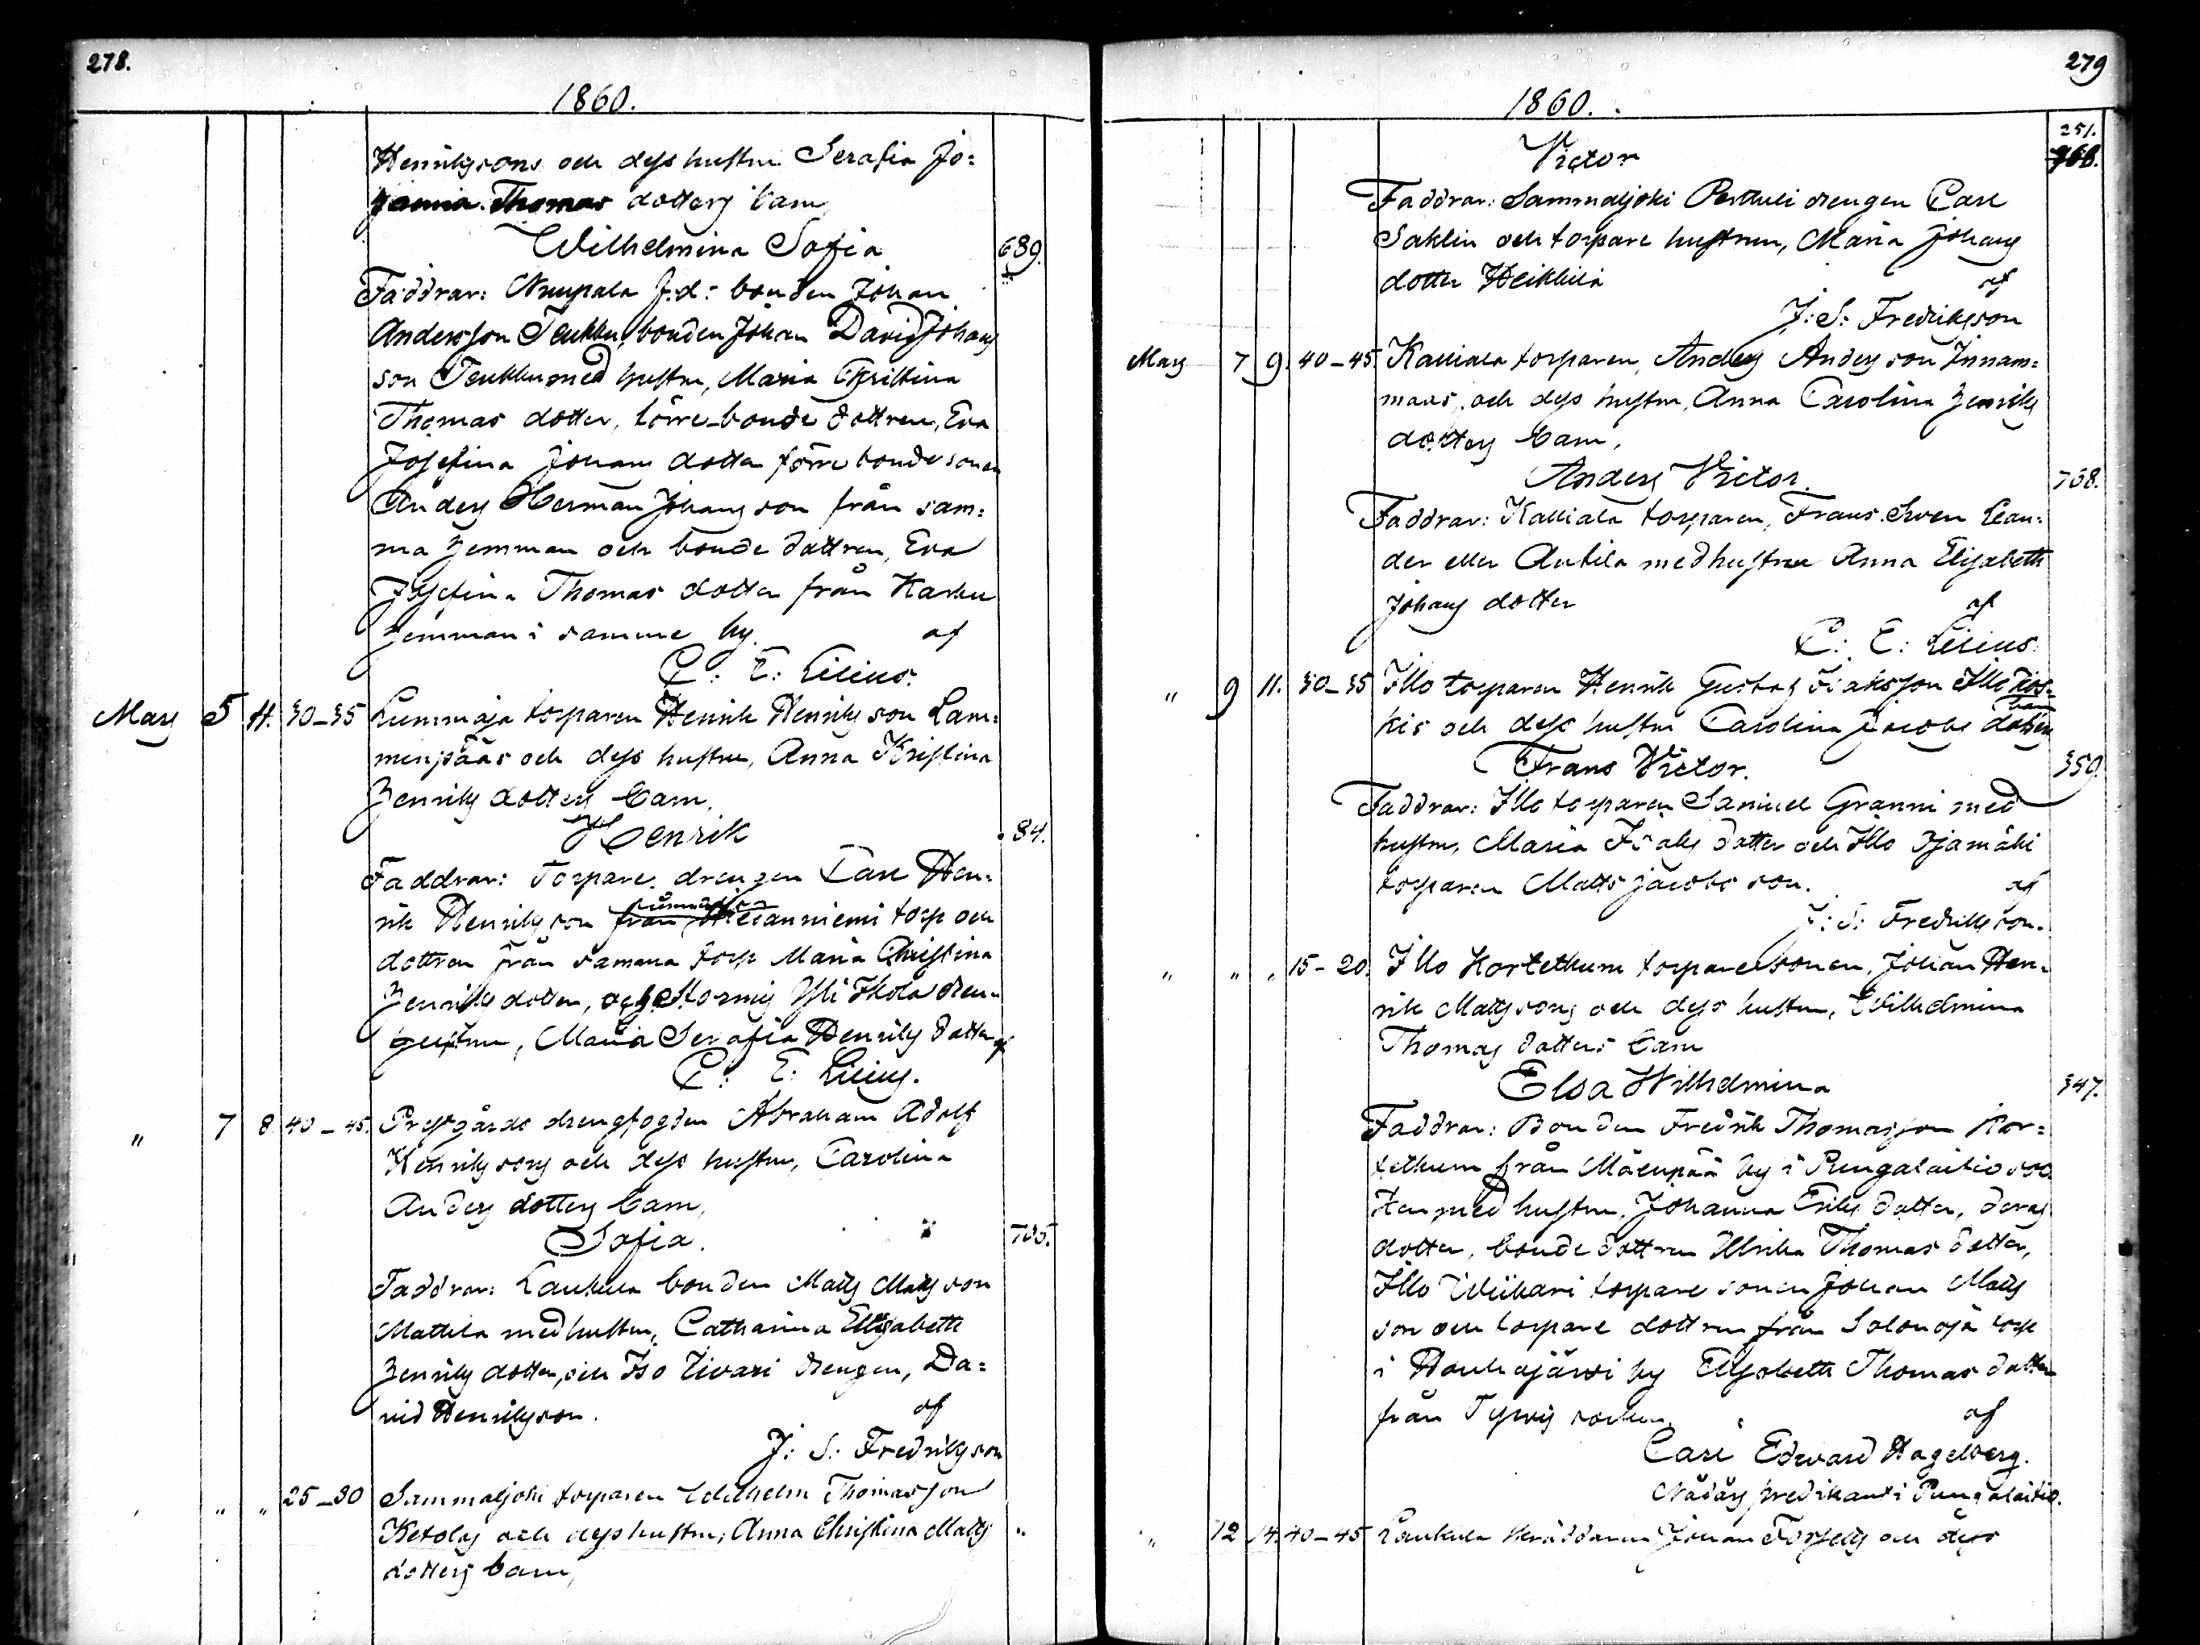 278.
1860.
Henriksons och dess hustru Serafia Jo=
hanna Thomas dotters barn
Wilhelmina Sofia 689.
Faddrar: Nuupala J:d: bonden Johan
Andersson Teukku, bonden Johan David Johans
son Teukku med hustru, Maria Christina
Thomas dotter, förre bonde dottren, Eva
Josefina Johans dotter förre bondesonen
Anders Herman Johansson från sam=
ma hemman och bonde dottren, Eva
Josefina Thomas dotter från Karhu
hemman i samme by. af
C: E: Lilius.
May 5 11. 30–35 Lummaja torparen Henrik Henriks son Lam=
menpääs och dess hustru, Anna Kristina
Henriks dotters barn,
Henrik 84.
Faddrar: Torpare drengen Carl Hen=
rik Henriks son från Hietanniemi torp och
dottren från samma torp Maria Christina
Henriks dotter, och Kornis Yli Ikola dren=
gehustru, Maria Serafia Henriks dotter af
C: E: Lilius.
" 7 8. 40–45. Prestgårds drengfogden Abraham Adolf
Henriksons och dess hustru, Carolina
Anders dotters barn,
Sofia. 705.
Faddrar: Laukula bonden Matts Matts son
Mattila med hustru, Catharina Elisabeth
Henriks dotter, och Iso Uvari drengen, Da=
vid Henrikson. af
J: S: Fredrikson
" " 25–30 Sammaljoki torparen Wilhelm Thomasson
Ketolas och dess hustru, Anna Christina Matts "
dotters barn,
279
1860.
251.
Victor 768.
Faddrar: Sammaljoki Perttuli drengen Carl
Sahlin och torpare hustrun, Maria Johans
dotter Heikkilä af
J: S: Fredrikson
May 7 9. 40–45. Kalliala torparen, Anders Andersson Innam=
maas, och dess hustru, Anna Carolina Henriks
dotters barn,
Anders Victor. 768.
Faddrar: Kalliala torparen, Frans Sven Lean=
der eller Antila med hustru Anna Elisabeth
Johans dotter af
C: E: Lilius.
" 9 11. 30–35 Illo torparen Henrik Gustaf Isaksson Illo Kos=
kis och dess hustru Carolina Jacobs dotters barn
Frans Victor. 350.
Faddrar: Illo torparen Samuel Granni med
hustru, Maria Isaks dotter och Illo Ojamäki
torparen Matts Jacobs son. af
J: S: Fredrikson.
" " " 15–20. Illo Kortekum torpare sonen, Johan Hen=
rik Mattsons och dess hustru, Wilhelmina
Thomas dotters barn
Elsa Wilhelmina 347.
Faddrar: Bonden Fredrik Thomasson Kor=
tekum från Mäenpää by i Pungalaitio soc=
ken med hustru, Johanna Eriks dotter, deras
dotter, bonde dottren Ulrika Thomas dotter,
Illo Wiikari torpare sonen Johan Matts
son och torpare dottren från Salonoja torp
i Houhajärvi by Elisabeth Thomas dotter
från Tyrvis socken. af
Carl Edward Hagelberg.
Nådårs predikant i Pungalaitio.
" 12 14. 40–45 Laukula skräddaren Johan Forsells och dess